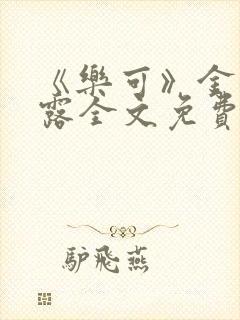 《樂可》金
露全文免費
駈飛燕